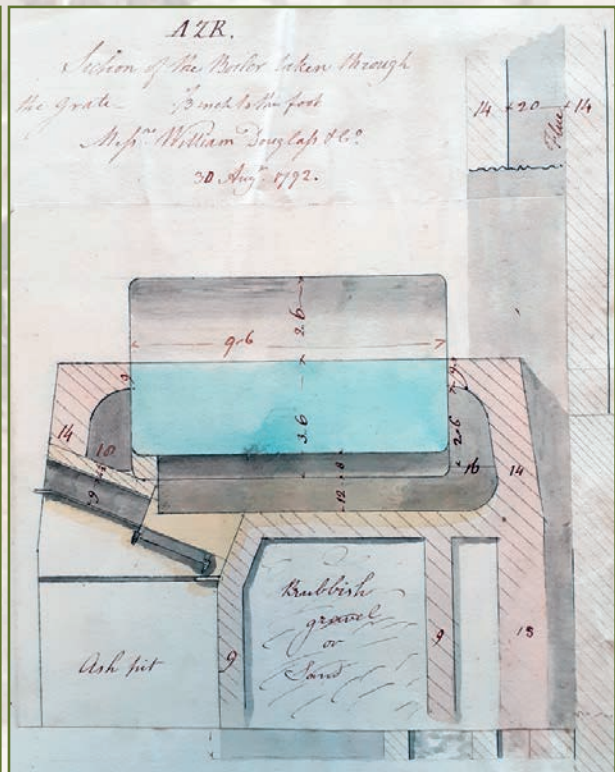 AZR.
Section of the Boiler taken through
the Grate inch to the foot
Messrs. William Douglass & Co.
30 Augt. 1792.
14 20 14
Flue
2-6
9-6
3-6
2-6
14
9
16
14
8
12
Rubbish
gravel
or
Sand
9
9
18
Ash pit